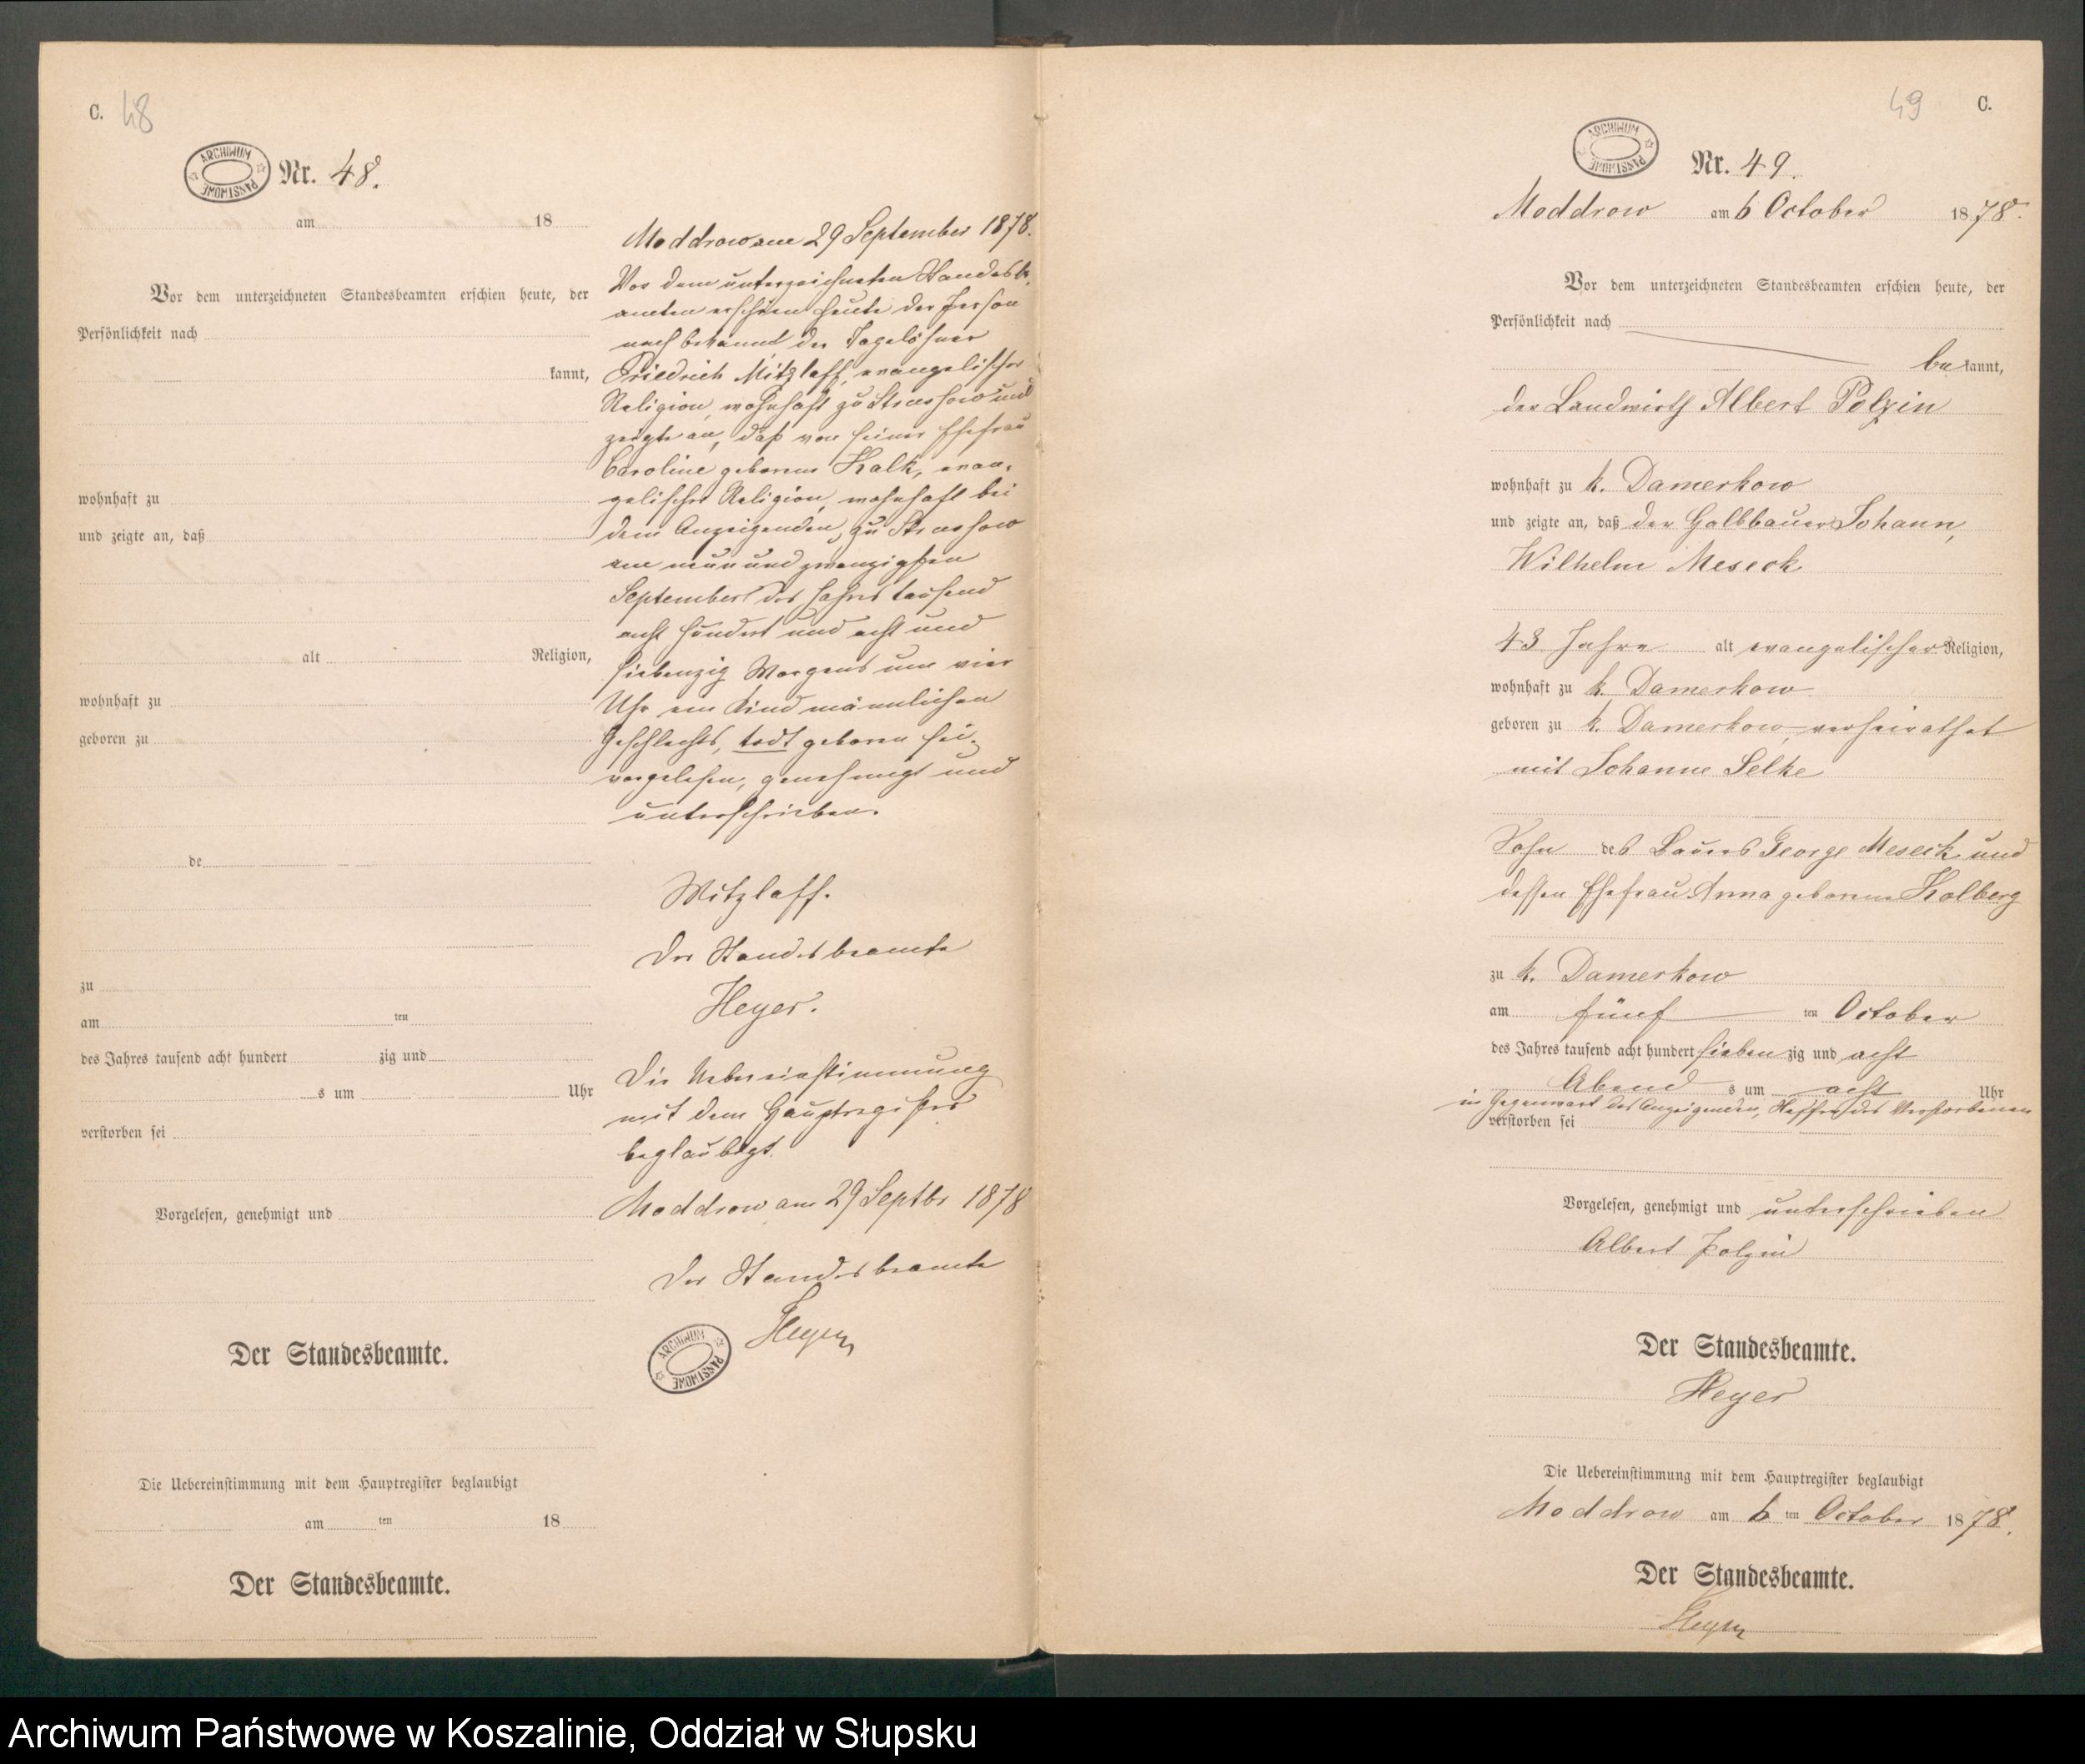 C. 48
ARCHIWUM PAŃSTWOWE
Nr. 48.
am 18
Vor dem unterzeichneten Standesbeamten erschien heute, der
Persönlichkeit nach
kannt,
wohnhaft zu
und zeigte an, daß
alt Religion,
wohnhaft zu
geboren zu
de
zu
am ten
des Jahres tausend acht hundert zig und
s um Uhr
verstorben sei
Vorgelesen, genehmigt und
Der Standesbeamte.
Die Uebereinstimmung mit dem Hauptregister beglaubigt
am ten 18
Der Standesbeamte.
Moddrow am 29 September 1878.
Vor dem unterzeichneten Standesbe,
amten erschien heute der Person
nach bekannt der Tagelöhner
Friedrich Mitzlaff, evangelischer
Religion, wohnhaft zu Strussow und
zeigte an, daß von seiner Ehefrau
Caroline geborene Kalk, evan,
gelischer Religion, wohnhaft bei
dem Anzeigenden, zu Strussow
am neun und zwanzigsten
September des Jahres tausend
acht hundert und acht und
siebenzig Morgens um vier
Uhr ein Kind männlichen
Geschlechts, todt geboren sei.
vorgelesen, genehmigt und
unterschrieben.
Mitzlaff.
Der Standesbeamte
Heyer.
Die Uebereinstimmung
mit dem Hauptregister
beglaubigt.
Moddrow am 29 Septbr 1878
Der Standesbeamte
Heyer
ARCHIWUM PAŃSTWOWE
49 C.
ARCHIWUM PAŃSTWOWE
Nr. 49.
Moddrow am 6 October 1878.
Vor dem unterzeichneten Standesbeamten erschien heute, der
Persönlichkeit nach
bekannt,
der Landwirth Albert Polzin
wohnhaft zu k. Damerkow
und zeigte an, daß der Halbbauer Johann,
Wilhelm Meseck
48 Jahre alt evangelischer Religion,
wohnhaft zu k. Damerkow
geboren zu k. Damerkow, verheirathet
mit Johanne Selke
Sohn des Bauers George Meseck und
dessen Ehefrau Anna geborene Kolberg
zu k. Damerkow
am fünf ten October
des Jahres tausend acht hundert siebenzig und acht
Abends um acht Uhr
in Gegenwart des Anzeigenden, Neffen des Verstorbenen
verstorben sei
Vorgelesen, genehmigt und unterschrieben
Albert Polzin
Der Standesbeamte.
Heyer
Die Uebereinstimmung mit dem Hauptregister beglaubigt
Moddrow am 6 ten October 1878.
Der Standesbeamte.
Heyer
Archiwum Państwowe w Koszalinie, Oddział w Słupsku